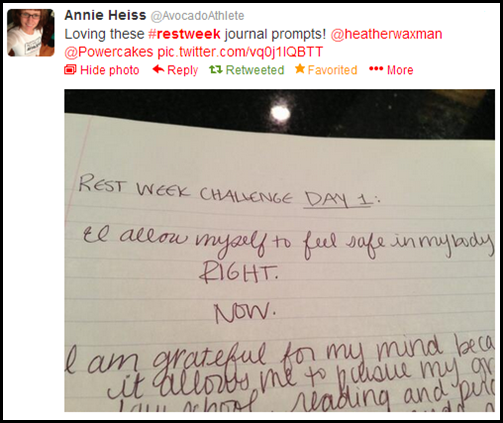 Annie Heiss @AvocadoAthlete
Loving these #restweek journal prompts! @heatherwaxman
@Powercakes pic.twitter.com/vq0j1IQBTT
Hide photo Reply Retweeted Favorited More
REST WEEK CHALLENGE DAY 1:
I allow myself to feel safe in my body
RIGHT.
NOW.
I am grateful for my mind beca
it allows me to pursue my gr
law school, reading and